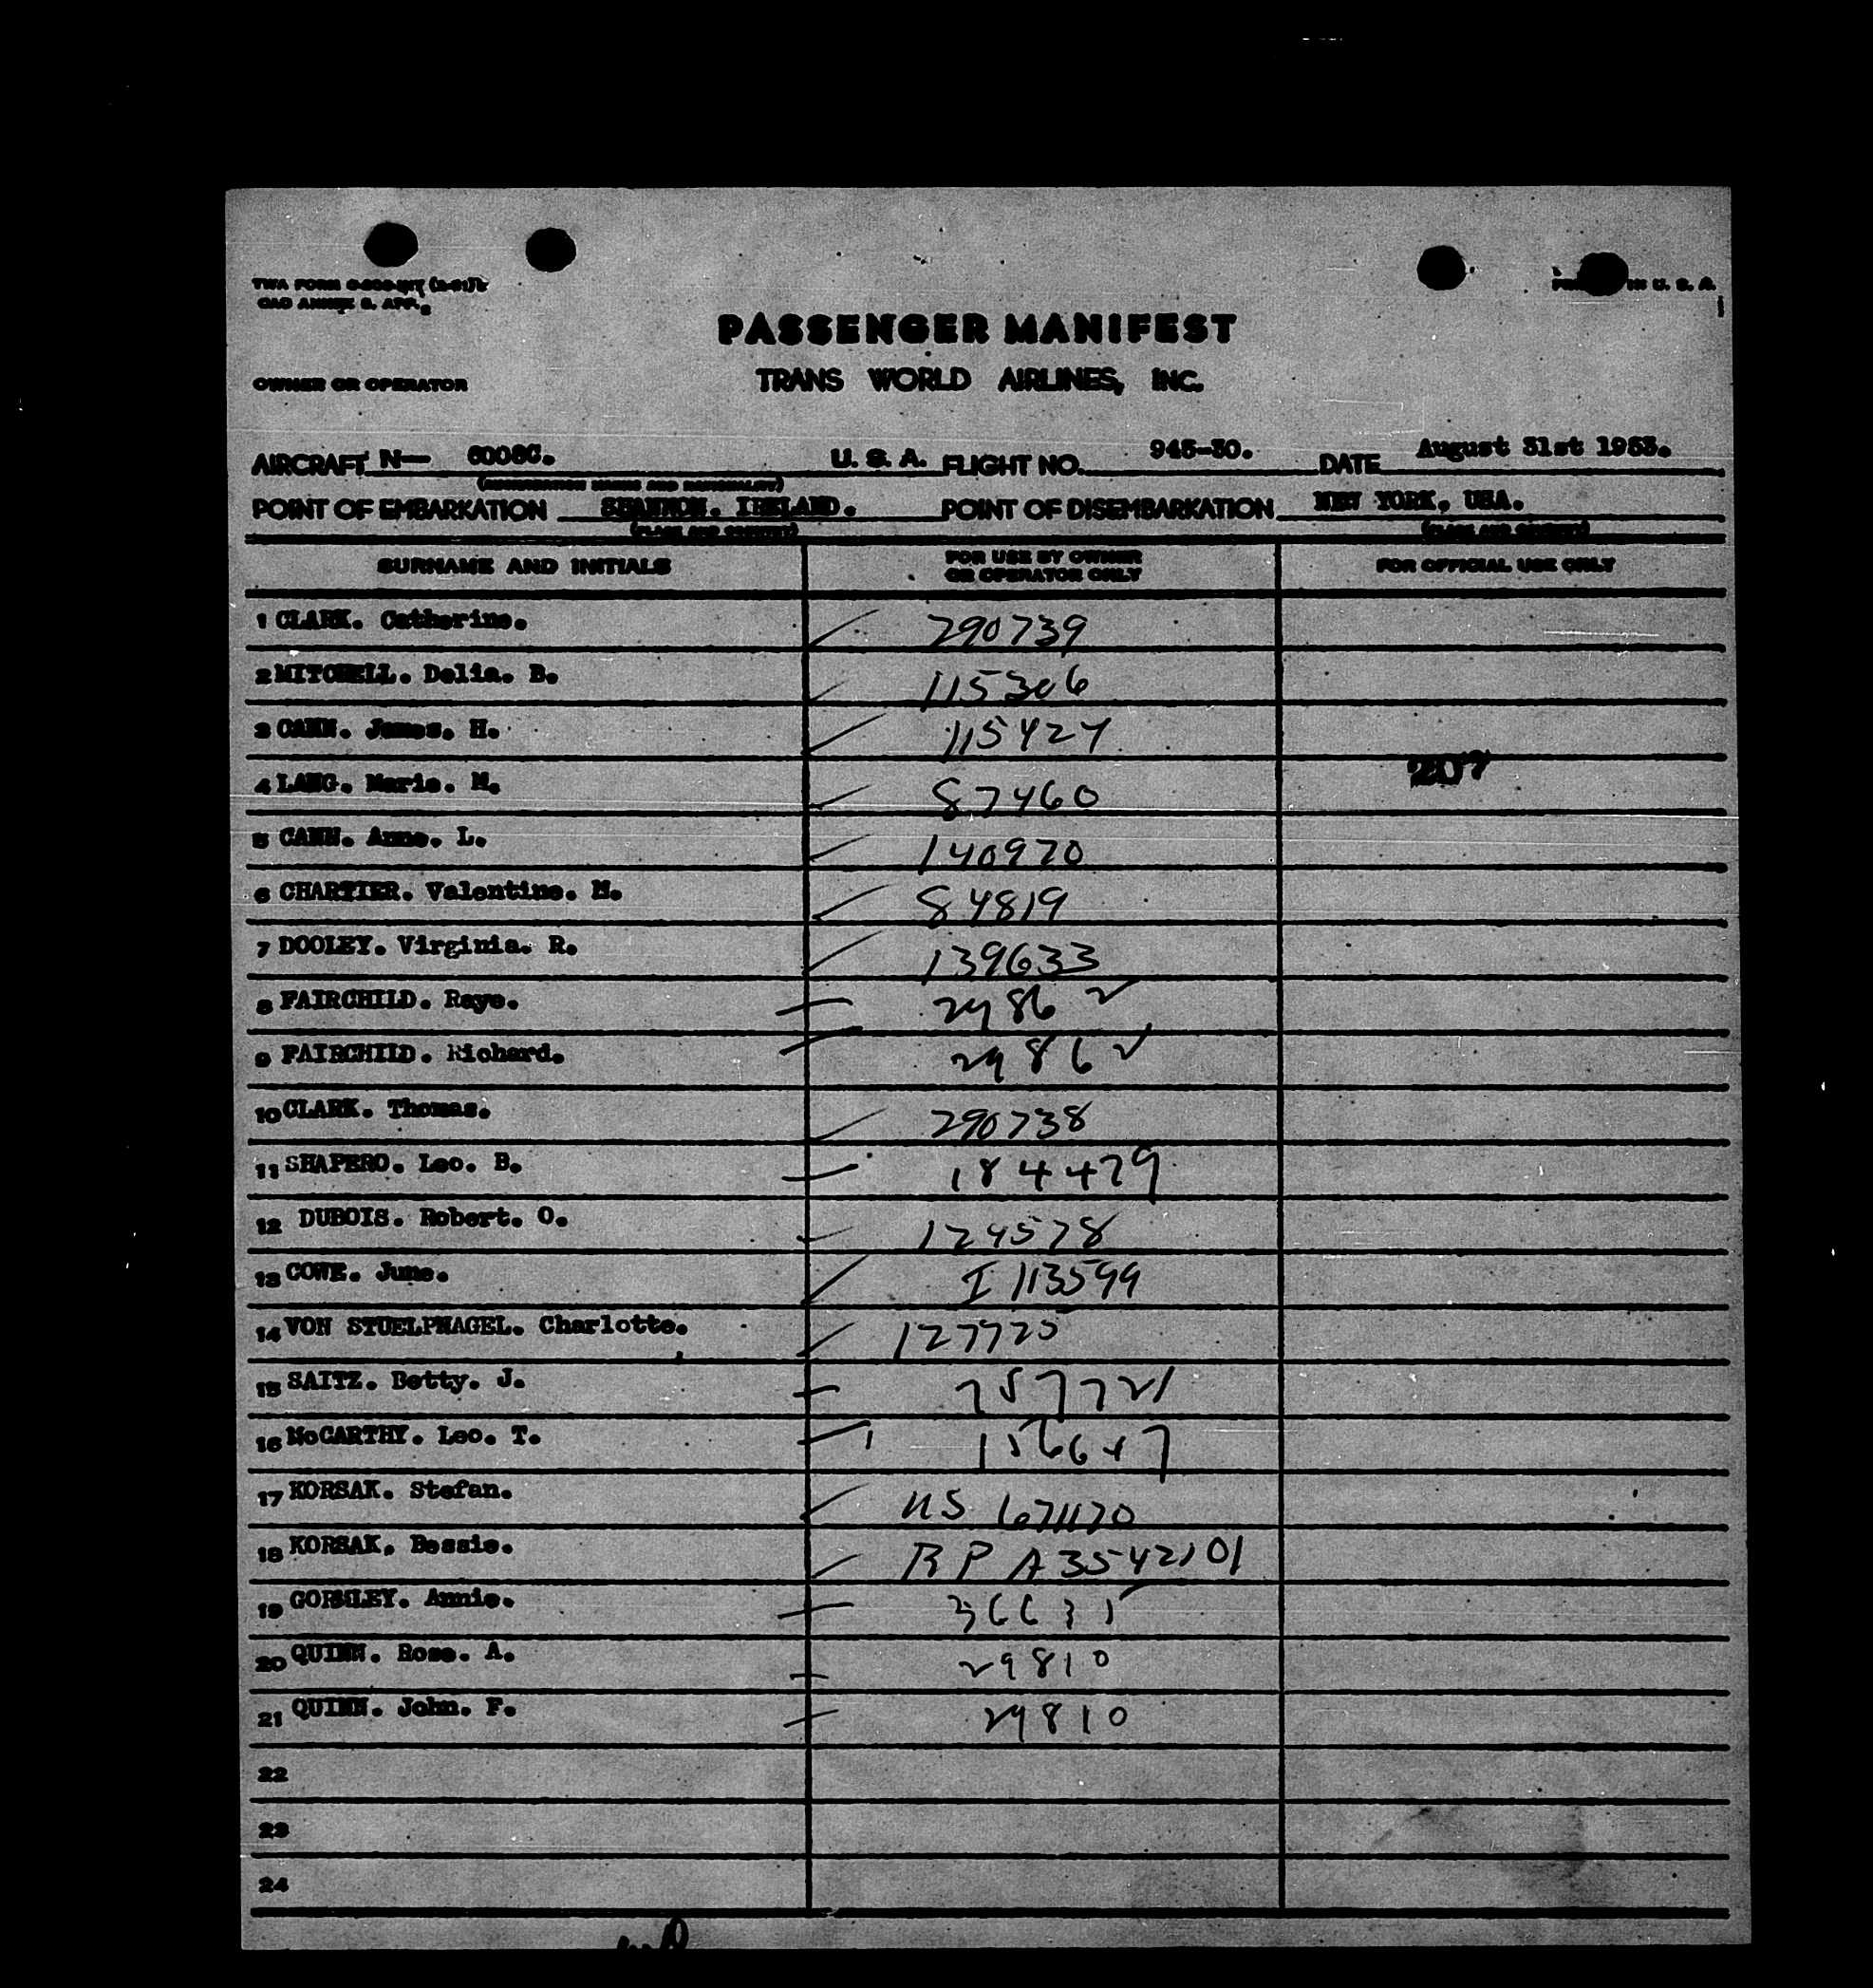 PASSENGER MANIFEST
OWNER OR OPERATOR TRANS WORLD AIRLINES, INC.
AIRCRAFT N— 6006C. U. S. A. FLIGHT NO. 945-30. DATE August 31st 1953.
POINT OF EMBARKATION SHANNON. IRELAND. POINT OF DISEMBARKATION NEW YORK, USA.
(PLACE AND COUNTRY) (PLACE AND COUNTRY)
SURNAME AND INITIALS FOR USE BY OWNER OR OPERATOR ONLY FOR OFFICIAL USE ONLY
1 CLARK. Catherine. 290739
2 MITCHELL. Delia. B. 115306
3 CANN. James. H. 115427
4 LANG. Marie. M. 87460
207
5 CANN. Anne. L. 140970
6 CHARTIER. Valentine. M. 84819
7 DOOLEY. Virginia. R. 139633
8 FAIRCHILD. Raye. 2986 ✓
9 FAIRCHILD. Richard. 2986 ✓
10 CLARK. Thomas. 290738
11 SHAPERO. Leo. B. 184479
12 DUBOIS. Robert. O. 124578
13 COWE. June. I 113599
14 VON STUELPNAGEL. Charlotte. 127725
15 SAITZ. Betty. J. 757721
16 McCARTHY. Leo. T. 156647
17 KORSAK. Stefan. US 671170
18 KORSAK. Bessie. RP A3542101
19 GORMLEY. Annie. 36631
20 QUINN. Rose. A. 29810
21 QUINN. John. F. 29810
22
23
24